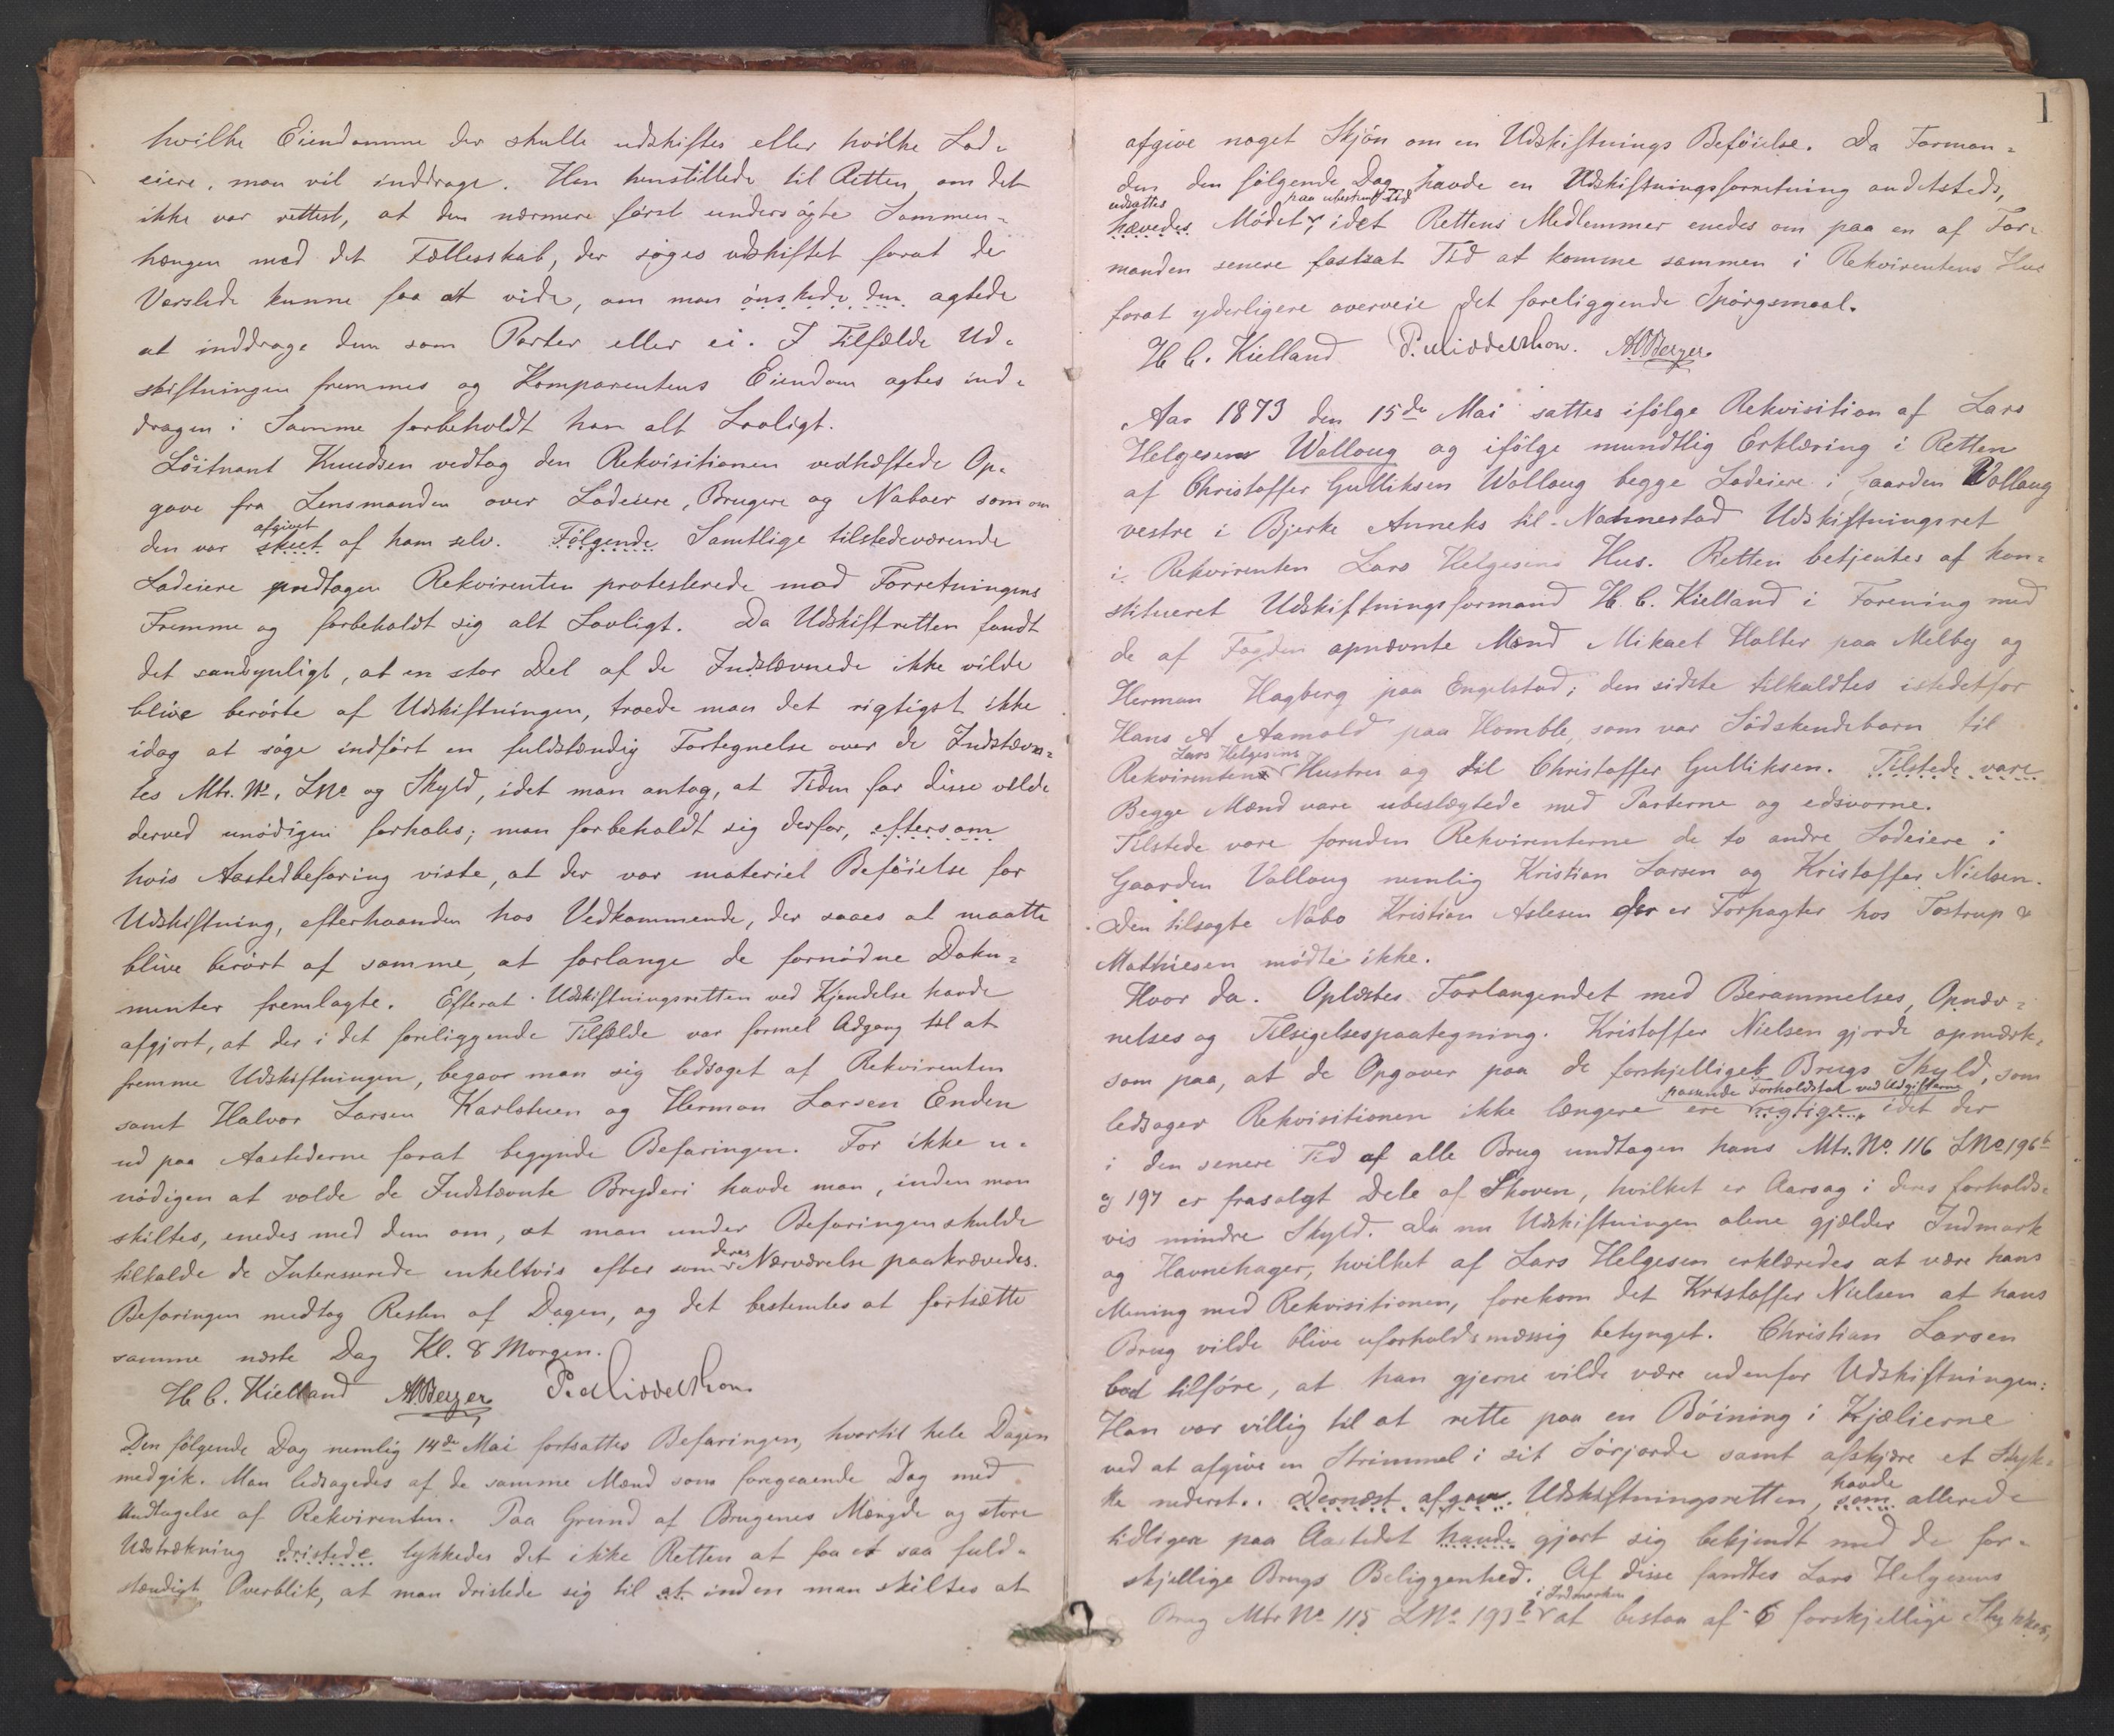 hvilke Eiendomme der skulle udskiftes eller hvilke Lod-
eiere, man vil inddrage. Han henstillede til Retten, om det
ikke var rettest, at den nærmere först undersögte Sammen-
hængen med det Fællesskab, der söges udskiftet forat de
Varslede kunne faa at vide, om man önskede den agtede
at inddrage dem som Parter eller ei. I Tilfælde Ud-
skiftningen fremmes og Komparentens Eiendom agtes ind-
dragen i Samme forbeholdt han alt Lovligt.
Löitnant Knudsen vedtog den Rekvisitionen vedhæftede Op-
gave fra Lensmanden over Lodeiere, Brugere og Naboer som om
afgivet
den var skeet af ham selv. Fölgende Samtlige tilstedeværende
Lodeiere undtagen Rekvirenten protesterede mod Forretningens
Fremme og forbeholdt sig alt Lovligt. Da Udskiftretten fandt
det sandsynligt, at en stor Del af de Indstævnede ikke vilde
blive berörte af Udskiftningen, troede man det rigtigst ikke
idag at söge indfört en fuldstændig Fortegnelse over de Indstævn-
tes Mtr. No, LNo og Skyld, idet man antog, at Tiden for disse vilde
derved unödigen forhales; man forbeholdt sig derfor, eftersom
hvis Aastedbefaring viste, at der var materiel Beföielse for
Udskiftning, efterhaanden hos Vedkommende, der saaes at maatte
blive berört af samme, at forlange de fornödne Doku-
menter fremlagte. Efterat Udskiftningsretten ved Kjendelse havde
afgjort, at der i det foreliggende Tilfælde var formel Adgang til at
fremme Udskiftningen, begav man sig ledsaget af Rekvirenten
samt Halvor Larsen Karlstuen og Herman Larsen Enden
ud paa Aastederne forat begynde Befaringen. For ikke u-
nödigen at volde de Indstævnte Bryderi havde man, inden man
skiltes, enedes med dem om, at man under Befaringen skulde
deres
tilkalde de Interesserede enkeltvis efter som Nærværelse paakrævedes.
Befaringen medtog Resten af Dagen, og det bestemtes at fortsætte
samme næste Dag Kl. 8 Morgen.
H. C. Kielland
Den fölgende Dag nemlig 14de Mai fortsattes Befaringen, hvortil hele Dagen
medgik. Man ledsagedes af de samme Mænd som foregaaende Dag med
Undtagelse af Rekvirenten. Paa Grund af Brugenes Mængde og store
Udstrækning dristede lykkedes det ikke Retten at faa et saa fuld-
stændigt Overblik, at man dristede sig til at inden man skiltes at
1
afgive noget Skjön om en Udskiftnings Beföielse. Da Forman-
den den fölgende Dag havde en Udskiftningsforretning andetsteds,
udsattes paa ubestemt Tid
hævedes Mödet, idet Rettens Medlemmer enedes om paa en af For-
manden senere fastsat Tid at komme sammen i Rekvirentens Hus
forat yderligere overveie det foreliggende Spörgsmaal.
H. C. Kielland
Aar 1873 den 15de Mai sattes ifölge Rekvisition af Lars
Helgesen Wallaug og ifölge mundtlig Erklæring i Retten
af Christoffer Gulliksen Wallaug begge Lodeiere i Gaarden Vallaug
vestre i Bjerke Anneks til Nannestad Udskiftningsret
i Rekvirenten Lars Helgesens Hus. Retten betjentes af kon-
stitueret Udskiftningsformand H. C. Kielland i Forening med
de af Fogden opnævnte Mænd Mikael Holter paa Melby og
Herman Hagberg paa Engelstad; den sidste tilkaldtes istedetfor
Hans A Aamold paa Homble, som var Södskendebarn til
Lars Helgesens
Rekvirentens Hustru og til Christoffer Gulliksen. Tilstede vare
Begge Mænd vare ubeslægtede med Parterne og edsvorne.
Tilstede vare foruden Rekvirenterne de to andre Lodeiere i
Gaarden Vallaug nemlig Kristian Larsen og Kristoffer Nielsen.
Den tilsagte Nabo Kristian Aslesen der er Forpagter hos Tostrup &
Mathiesen mödte ikke.
Hvor da. Oplæstes Forlangendet med Berammelses, Opnæv-
nelses og Tilsigelsespaategning. Kristoffer Nielsen gjorde opmærk-
som paa, at de Opgaver paa de forskjellige Brugs Skyld, som
passende Forholdstal ved Udgifterne
ledsager Rekvisitionen ikke længere ere rigtige, idet der
i den senere Tid af alle Brug undtagen hans Mtr. No. 116 LNo 196b
og 197 er frasolgt Dele af Skoven, hvilket er Aarsag i deres forholds-
vis mindre Skyld. Da nu Udskiftningen alene gjælder Indmark
og Havnehager, hvilket af Lars Helgesen erklæredes at være hans
Mening med Rekvisitionen, forekom det Kristoffer Nielsen at hans
Brug vilde blive uforholdsmæssig betynget. Christian Larsen
bad tilföre, at han gjerne vilde være udenfor Udskiftningen:
Han var villig til at rette paa en Böining i Kjælierne
ved at afgive en Strimmel i sit Sörjorde samt afskjære et Styk-
ke nederst. Dernæst afgav Udskiftningsretten, som allerede
havde
tidligere paa Aastedet havde gjort sig bekjendt med de for-
skjellige Brugs Beliggenhed. Af disse fandtes Lars Helgesens
i Indmarken
Brug Mtr No 115 LNo 193b at bestaa af 6 forskjellige Stykker,